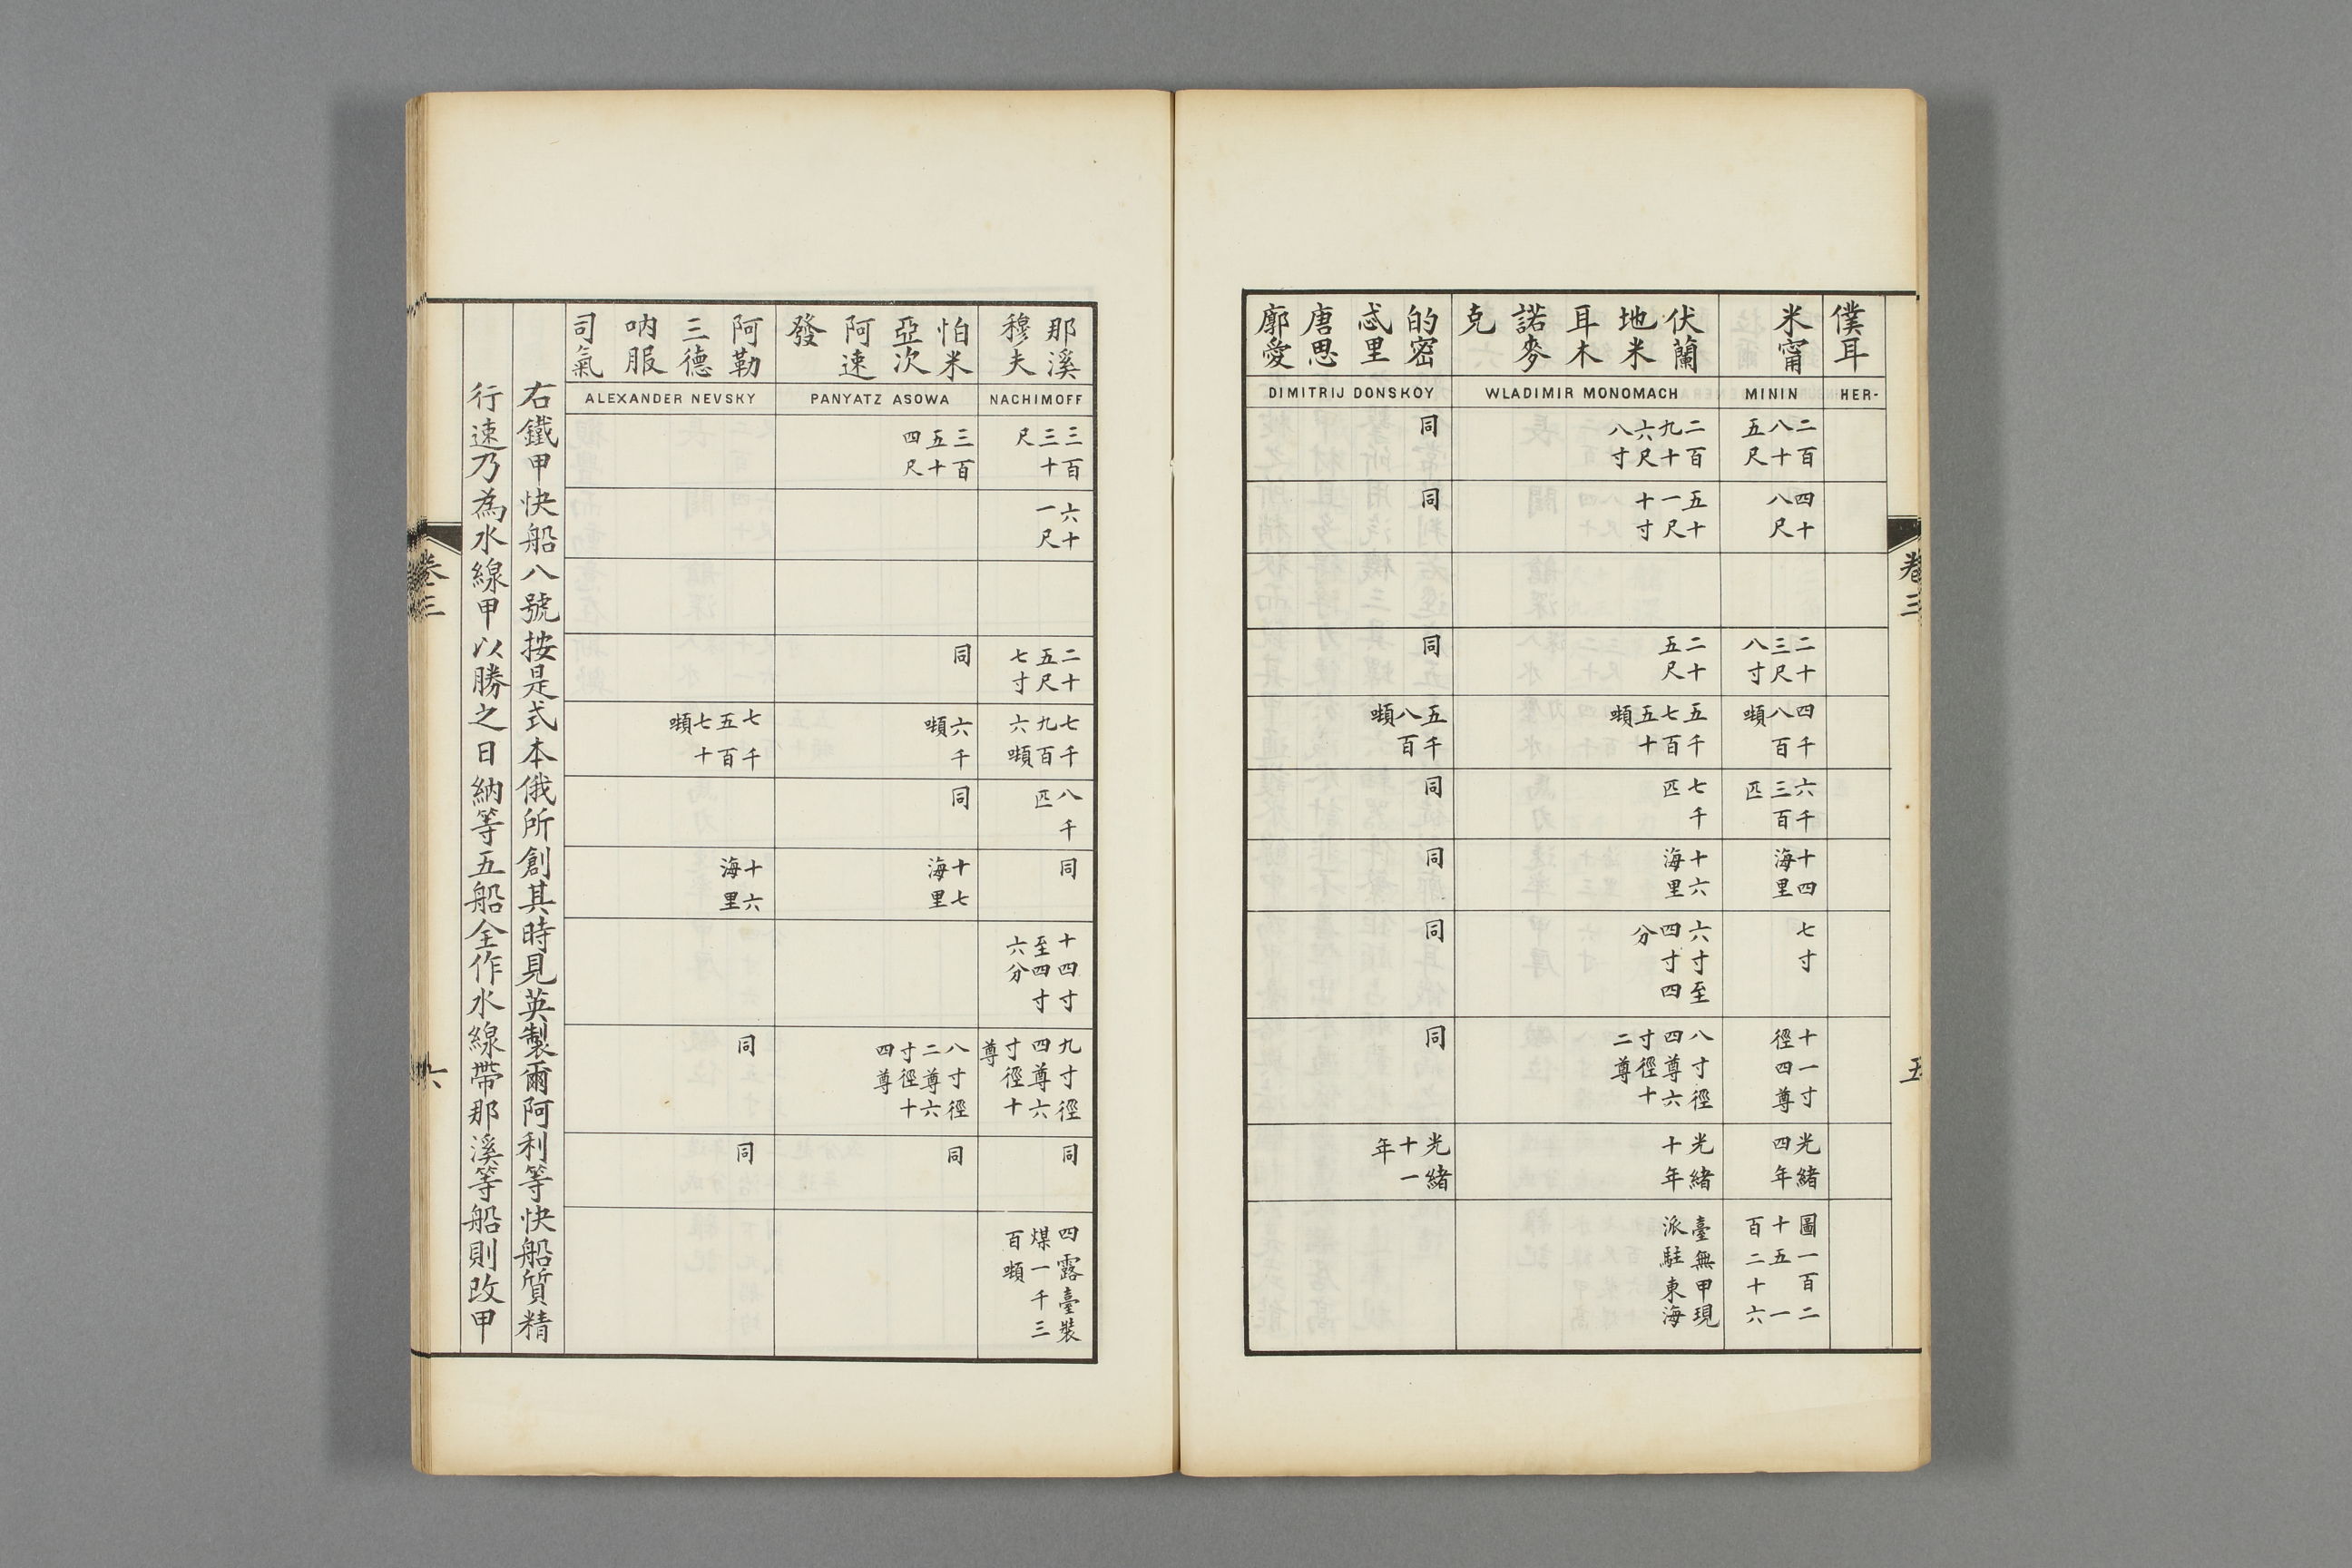 僕耳
HER-
米甯
MININ
二百
八十
五尺
四十
八尺
二十
三尺
八寸
四千
八百
嚬
六千
三百
匹
十四
海里
七寸
十一寸
徑四尊
光緒
四年
圖一百二
十五 一
百二十六
伏蘭
地米
耳木
諾麥
克
WLADIMIR MONOMACH
二百
九十
六尺
八寸
五十
一尺
十寸
二十
五尺
五千
七百
五十
嚬
七千
匹
十六
海里
六寸至
四寸四
分
八寸徑
四尊六
寸徑十
二尊
光緒
十年
臺無甲現
派駐東海
的密
忒里
唐思
廓愛
DIMITRIJ DONSKOY
同
同
同
五千
八百
嚬
同
同
同
同
光緒
十一
年
卷三
五
那溪
穆夫
NACHIMOFF
三百
三十
尺
六十
一尺
二十
五尺
七寸
七千
九百
六嚬
八千
匹
同
十四寸
至四寸
六分
九寸徑
四尊六
寸徑十
尊
同
四露臺裝
煤一千三
百嚬
怕米
亞次
阿速
發
PANYATZ ASOWA
三百
五十
四尺
同
六千
嚬
同
十七
海里
八寸徑
二尊六
寸徑十
四尊
同
阿勒
三德
吶服
司氣
ALEXANDER NEVSKY
七千
五百
七十
嚬
十六
海里
同
同
右鐵甲快船八號按是式本俄所創其時見英製爾阿利等快船質精
行速乃為水線甲以勝之日納等五船全作水線帶那溪等船則改甲
卷三
六